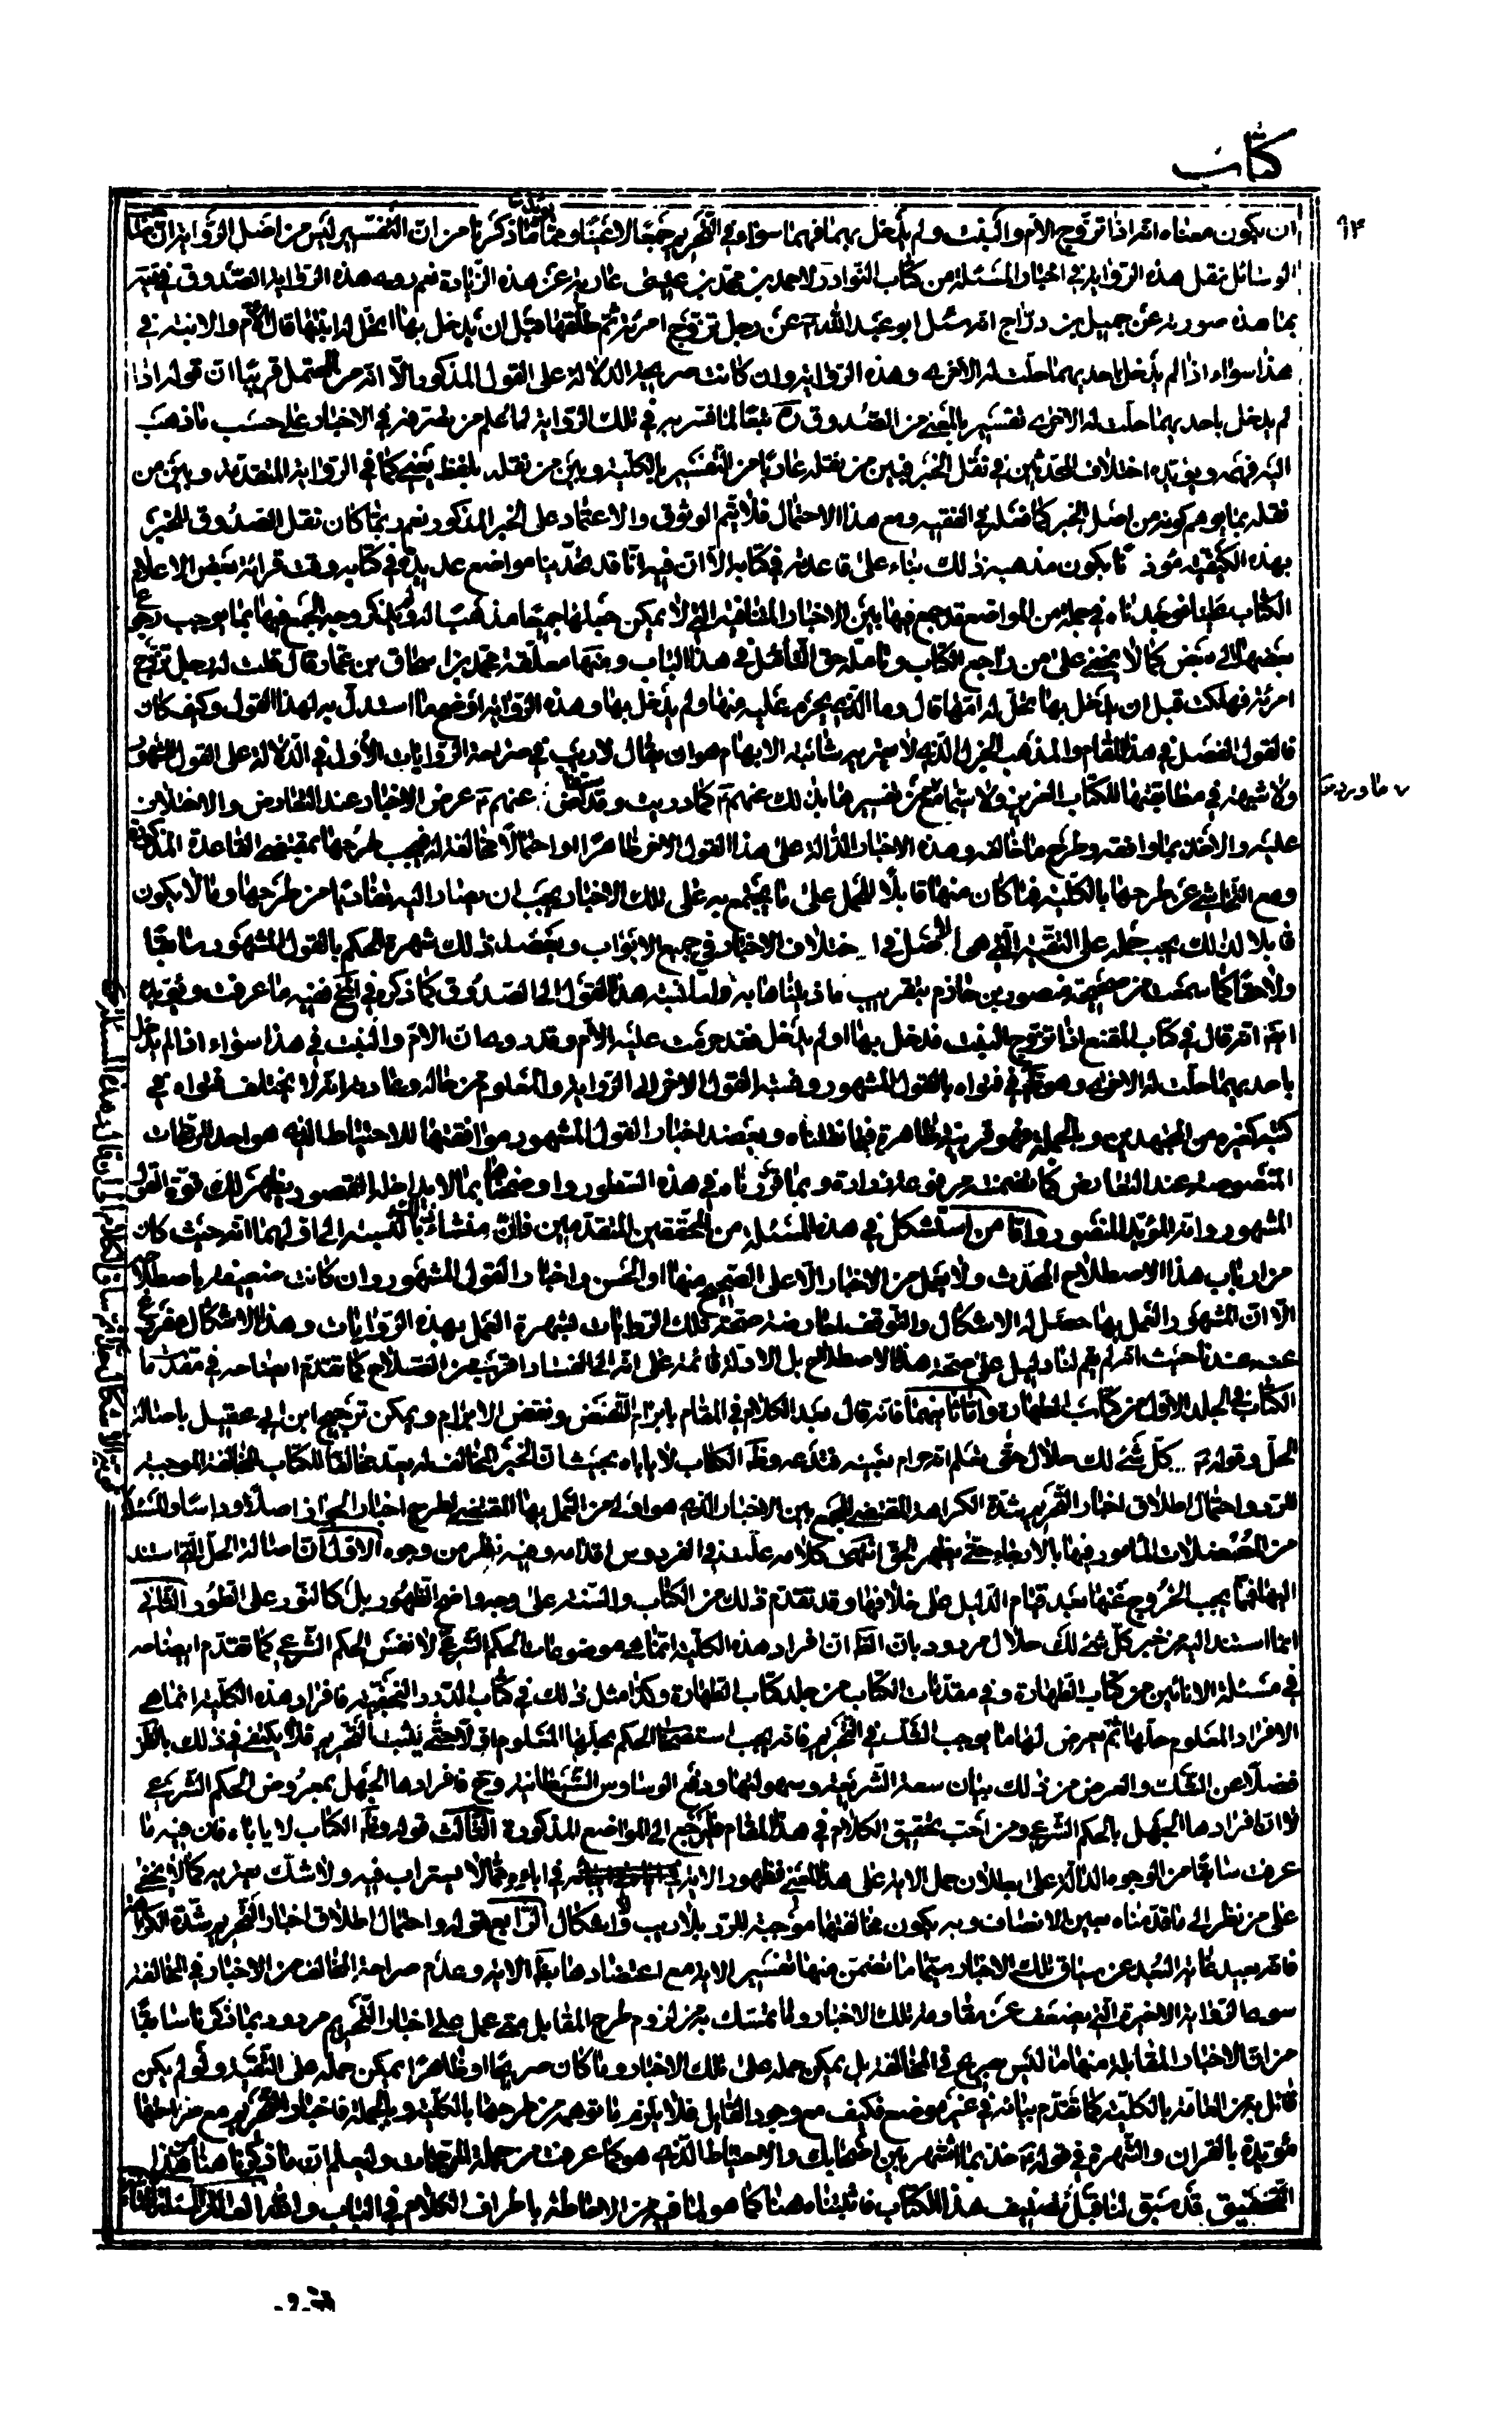 كتاب
٩٤
ان يكون معناه انه اذا تزوج الام والبنت ولم يدخل بهما فهما سواء في التحريم جمعا لا عينا ومما يؤيد ما ذكرنا من ان التفسير ليس من اصل الرواية ان صاحب
الوسائل نقل هذه الرواية في اخبار المسئلة من كتاب النوادر لاحمد بن محمد بن عيسى عارية عن هذه الزيادة نعم روى هذه الرواية الصدوق في فقيه
بما هذه صورته عن جميل بن دراج انه سئل ابو عبد الله ع عن رجل تزوج امرئة ثم طلقها قبل ان يدخل بها اتحل له ابنتها قال الام والابنة في
هذا سواء اذا لم يدخل باحديهما حلت له الاخرى وهذه الرواية وان كانت صريحة الدلالة على القول المذكور الا انه من المحتمل قريبا ان قوله اذا
لم يدخل باحديهما حلت له الاخرى تفسير بالمعنى من الصدوق ره تبعا لما فسر به في تلك الرواية لما علم من تصرفه في الاخبار على حسب ما ذهب
اليه فهمه ويؤيده اختلاف المحدثين في نقل الخبر فبين من نقله عاريا من التفسير بالكلية وبين من نقله بلفظ يعني كما في الرواية المتقدمة وبين من
نقله بما يوهم كونه من اصل الخبر كما فعله في الفقيه ومع هذا الاحتمال فلا يتم الوثوق والاعتماد على الخبر المذكور نعم ربما كان نقل الصدوق للخبر
بهذه الكيفية مؤذنا بكون مذهبه ذلك بناء على قاعدته في كتابه الا ان فيه انا قد تحققنا مواضع عديدة في كتابه وقت قرائة بعض الاعلام
الكتاب علينا فوجدناه في جملة من المواضع قد جمع فيها بين الاخبار المتنافية التي لا يمكن جعلها جميعا مذهبا له ولم يذكر وجه الجمع فيها بما يوجب رجوع
بعضها الى بعض كما لا يخفى على من راجع الكتاب وتامله حق التامل في هذا الباب ومنها معلقة محمد بن اسحاق بن عمار قال قلت له رجل تزوج
امرئة فهلكت قبل ان يدخل بها تحل له امها قال وما الذي يحرم عليه منها ولم يدخل بها وهذه الرواية اوضح ما استدل به لهذا القول وكيف كان
فالقول الفصل في هذا المقام والمذهب الجزل الذي لا يعتريه شائبة الابهام هو ان يقال لا ريب في صراحة الروايات الأول في الدلالة على القول المشهور
ولا شبهة في مطابقتها للكتاب العزيز ولا سيما مع تفسيرها بذلك عنهم ع كما دريت وقد استفاض عنهم ع عرض الاخبار عند التعارض والاختلاف
ما ورد
عليه والاخذ بما وافقه وطرح ما خالفه وهذه الاخبار الدالة على هذا القول الاخر ظاهرا او احتمالا مخالفة له فيجب طرحها بمقتضى القاعدة المذكورة
ومع التحاشي عن طرحها بالكلية فما كان منها قابلا للحمل على ما يجتمع به على تلك الاخبار يجب ان يصار اليه تفاديا من طرحها وما لا يكون
قابلا لذلك يجب حمله على التقية التي هي الاصل في اختلاف الاخبار في جميع الابواب ويعضد ذلك شهرة الحكم بالقول المشهور سابقا
ولاحقا كما سمعت من صحيحة منصور بن حازم بتقريب ما ذيلناها به واما نسبة هذا القول الى الصدوق كما ذكره في المخ ففيه ما عرفت ويؤيده
ايضا انه قال في كتاب المقنع اذا تزوج البنت فدخل بها او لم يدخل فقد حرمت عليه الام وقد روي ان الام والبنت في هذا سواء اذا لم يدخل
باحديهما حلت له الاخرى وهو في فتواه بالقول المشهور ونسب القول الاخر الى الرواية والمعلوم من حاله وعادته انه لا يختلف فتواه في
كتبه كغيره من المجتهدين وبالجملة فهو قرينة ظاهرة فيما قلناه ويعضد اخبار القول المشهور موافقتها للاحتياط الذي هو احد المرجحات
المنصوصة عند التعارض كما تضمنته مرفوعة زرارة وبما قررناه في هذه السطور واوضحناه بما لا يداخله القصور يظهر لك قوة القول
المشهور وانه المؤيد المنصور واما من استشكل في هذه المسئلة من المحققين المتقدمين فان منشائه بالنسبة الى اولهما انه حيث كان
من ارباب هذا الاصطلاح المحدث ولا يعمل من الاخبار الا على الصحيح منها او الحسن واخبار القول المشهور وان كانت ضعيفة باصطلاحه
الا ان المشهور العمل بها حصل له الاشكال والتوقف لمعارضة صحة تلك الروايات لشهرة العمل بهذه الروايات وهذا الاشكال مفروغ
عنه عندنا حيث انه لم يقم لنا دليل على صحة هذا الاصطلاح بل الادلة قائمة على انه الى الفساد اقرب من الصلاح كما تقدم ايضاحه في مقدمات
الكتاب في المجلد الاول من كتاب الطهارة واما ثانيهما فانه قال بعد الكلام في المقام بابرام النقض ونقض الابرام ويمكن ترجيح ابن ابي عقيل باصالة
الحل وقوله ع كل شئ لك حلال حتى تعلم انه حرام بعينه فتدعه وظ الكتاب لا ياباه بحيث ان الخبر المخالف له يعد مخالفا للكتاب المخالفة الموجبة
للرد واحتمال اطلاق اخبار التحريم شدة الكراهة المقتضي للجمع بين الاخبار الذي هو اولى من العمل بها المقتضي لطرح اخبار الجواز اصلا وراسا والمسئلة
من المعضلات المأمور فيها بالارجاء حتى يظهر الحق انتهى كلامه علت في الفردوس اقدامه وفيه نظر من وجوه الاول ان اصالة الحل التي استند
اليها انما يجب الخروج عنها بعد قيام الدليل على خلافها وقد تقدم ذلك من الكتاب والسنة على وجه واضح الظهور بل كالنور على الطور الثاني
ان ما استند اليه من خبر كل شئ لك حلال مردود بان الظ ان افراد هذه الكلية انما هي موضوعات الحكم الشرعي لا نفس الحكم الشرعي كما تقدم ايضاحه
في مسئلة الانائين من كتاب الطهارة وفي مقدمات الكتاب من جلد كتاب الطهارة وكذا مثل ذلك في كتاب الدرر النجفية فافراد هذه الكلية انما هي
الافراد المعلوم حلها ثم يعرض لها ما يوجب الشك في التحريم فانه يجب استصحاب الحكم بحلها المعلوم اولا حتى يثبت التحريم فلا يكتفى في ذلك بالظن
فضلا عن الشك والغرض من ذلك بيان سعة الشريعة وسهولتها ودفع الوساوس الشيطانية وح فافرادها الجهل بمعروض الحكم الشرعي
لا ان افرادها الجهل بالحكم الشرعي ومن احب تحقيق الكلام في هذا المقام فليرجع الى المواضع المذكورة الثالث قوله وظ الكتاب لا ياباه فان فيه ما
عرفت سابقا من الوجوه الدالة على بطلان حمل الاية على هذا المعنى فظهور الاية في اباءه مما لا يستراب فيه ولا شك يعتريه كما لا يخفى
على من نظر الى ما قدمناه بعين الانصاف وبه يكون مخالفتها موجبة للرد بلا ريب ولا اشكال الرابع قوله واحتمال اطلاق اخبار التحريم شدة الكراهة
فانه بعيد غاية البعد عن سياق تلك الاخبار سيما ما تضمن منها تفسير الاية مع اعتضادها بظ الاية وعدم صراحة المخالف من الاخبار في المخالفة
سوى الرواية الاخيرة التي يضعف عن مقاومة تلك الاخبار وما تمسك به من لزوم طرح المقابل متى عمل على اخبار التحريم مردود بما ذكرنا سابقا
من ان الاخبار المقابلة منها ما ليس بصريح في المخالفة بل يمكن حمله على تلك الاخبار وما كان صريحا او ظاهرا يمكن حمله على التقية ولو لم يكن
قائل به من العامة بالكلية كما تقدم بيانه في غير موضع فكيف مع وجود القائل فلا يلزم ما توهمه من طرحها بالكلية وبالجملة فاخبار التحريم مع صراحتها
مؤيدة بالقران والشهرة في قوله ع خذ بما اشتهر بين اصحابك والاحتياط الذي هو كما عرفت من جملة المرجحات وليعلم ان ما ذكرناه هنا من هذا
التحقيق قد سبق لنا قبل تصنيف هذا الكتاب فاثبتناه هنا كما هو لما فيه من الاحاطة باطراف الكلام في الباب والله العالم